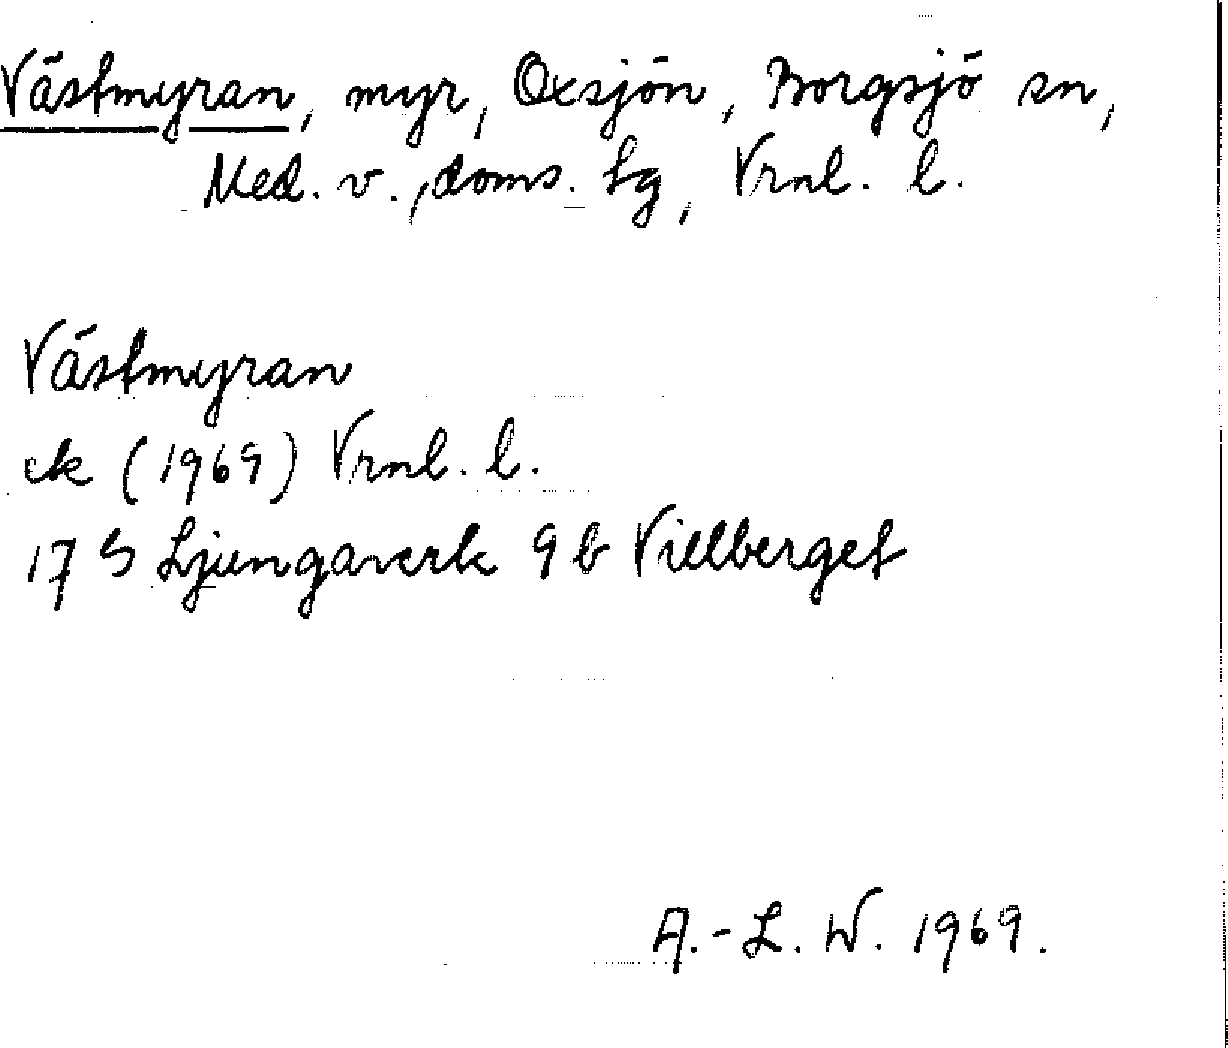 Västmyran, myr, Oxsjön, Borgsjö sn,
Med. v., doms. tg, Vrnl. l.
Västmyran
ek (1969) Vrnl. l.
17 G Ljungaverk 9 b Villberget
A.-L. W. 1969.